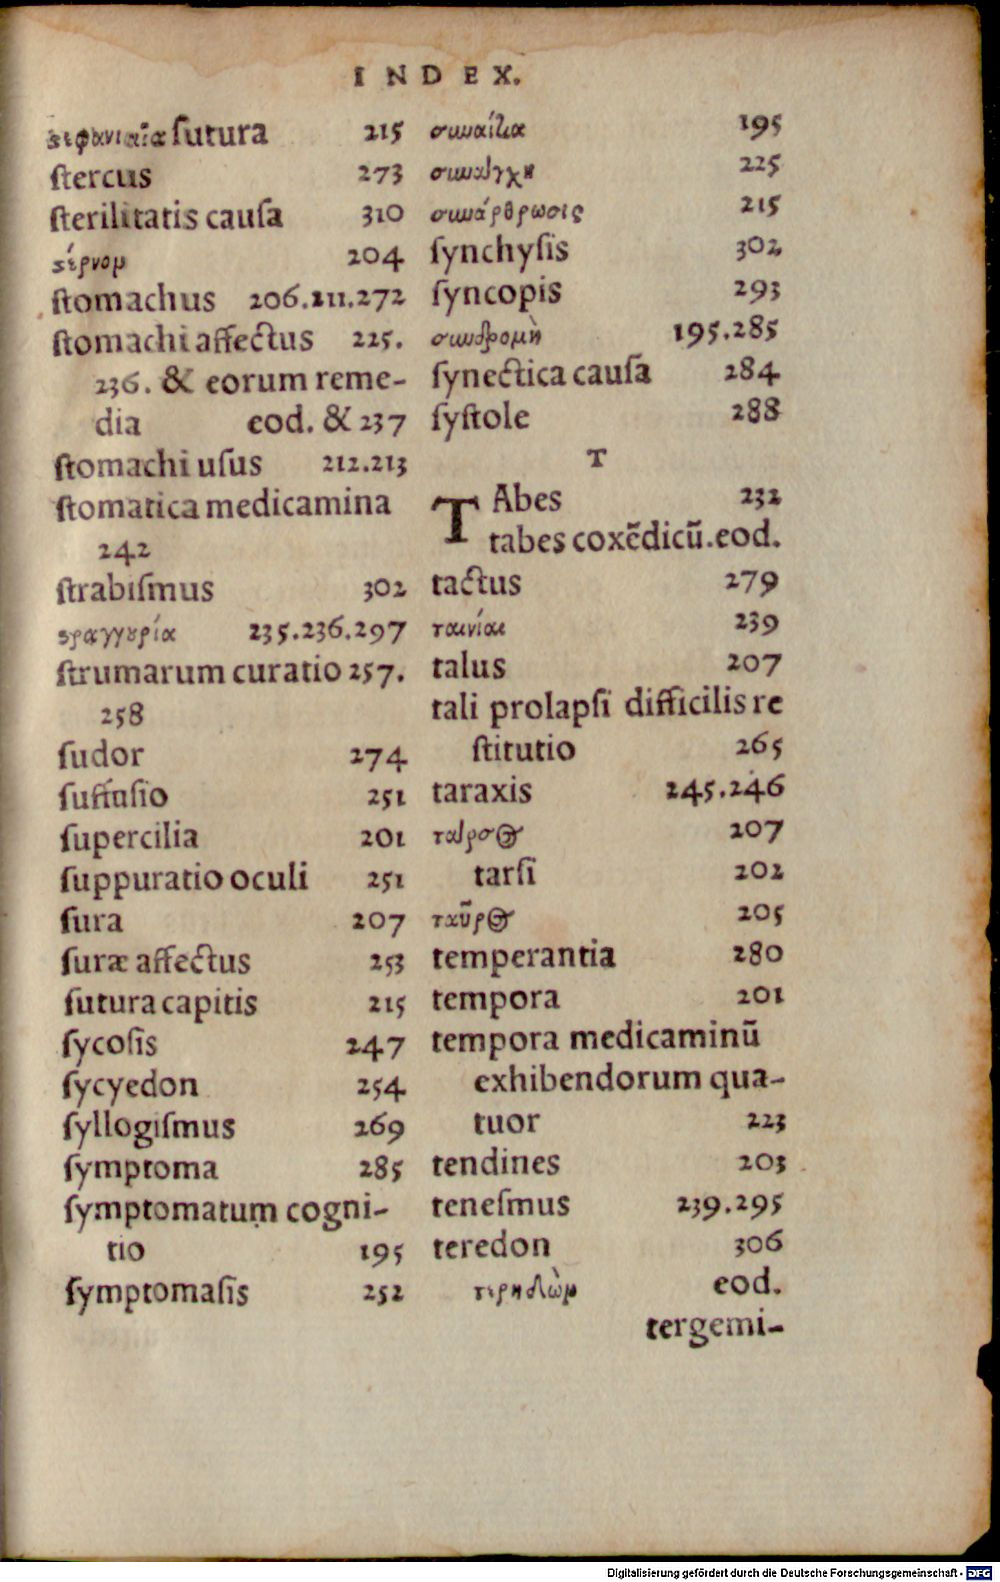 INDEX.
στεφανιαῖα ſutura 215
ſtercus 273
ſterilitatis cauſa 310
στέρνομ 204
ſtomachus 206.211.272
ſtomachi affectus 225.
236. & eorum reme-
dia eod. & 237
ſtomachi uſus 212.213
ſtomatica medicamina
242
ſtrabiſmus 302
στραγγουρία 235.236.297
ſtrumarum curatio 257.
258
ſudor 274
ſuffuſio 251
ſupercilia 201
ſuppuratio oculi 251
ſura 207
ſuræ affectus 253
ſutura capitis 215
ſycoſis 247
ſycyedon 254
ſyllogiſmus 269
ſymptoma 285
ſymptomatum cogni-
tio 195
ſymptomaſis 252
συναίτια 195
συνάγχη 225
συνάρθρωσις 215
ſynchyſis 302
ſyncopis 293
συνδρομὴ 195.285
ſynectica cauſa 284
ſyſtole 288
T
TAbes 232
tabes coxẽdicũ.eod.
tactus 279
ταινίαι 239
talus 207
tali prolapſi difficilis re
ſtitutio 265
taraxis 245.246
ταρσος 207
tarſi 202
ταῦρος 205
temperantia 280
tempora 201
tempora medicaminũ
exhibendorum qua-
tuor 223
tendines 203
teneſmus 239.295
teredon 306
τερηδὼμ eod.
tergemi-
Digitalisierung gefördert durch die Deutsche Forschungsgemeinschaft - DFG